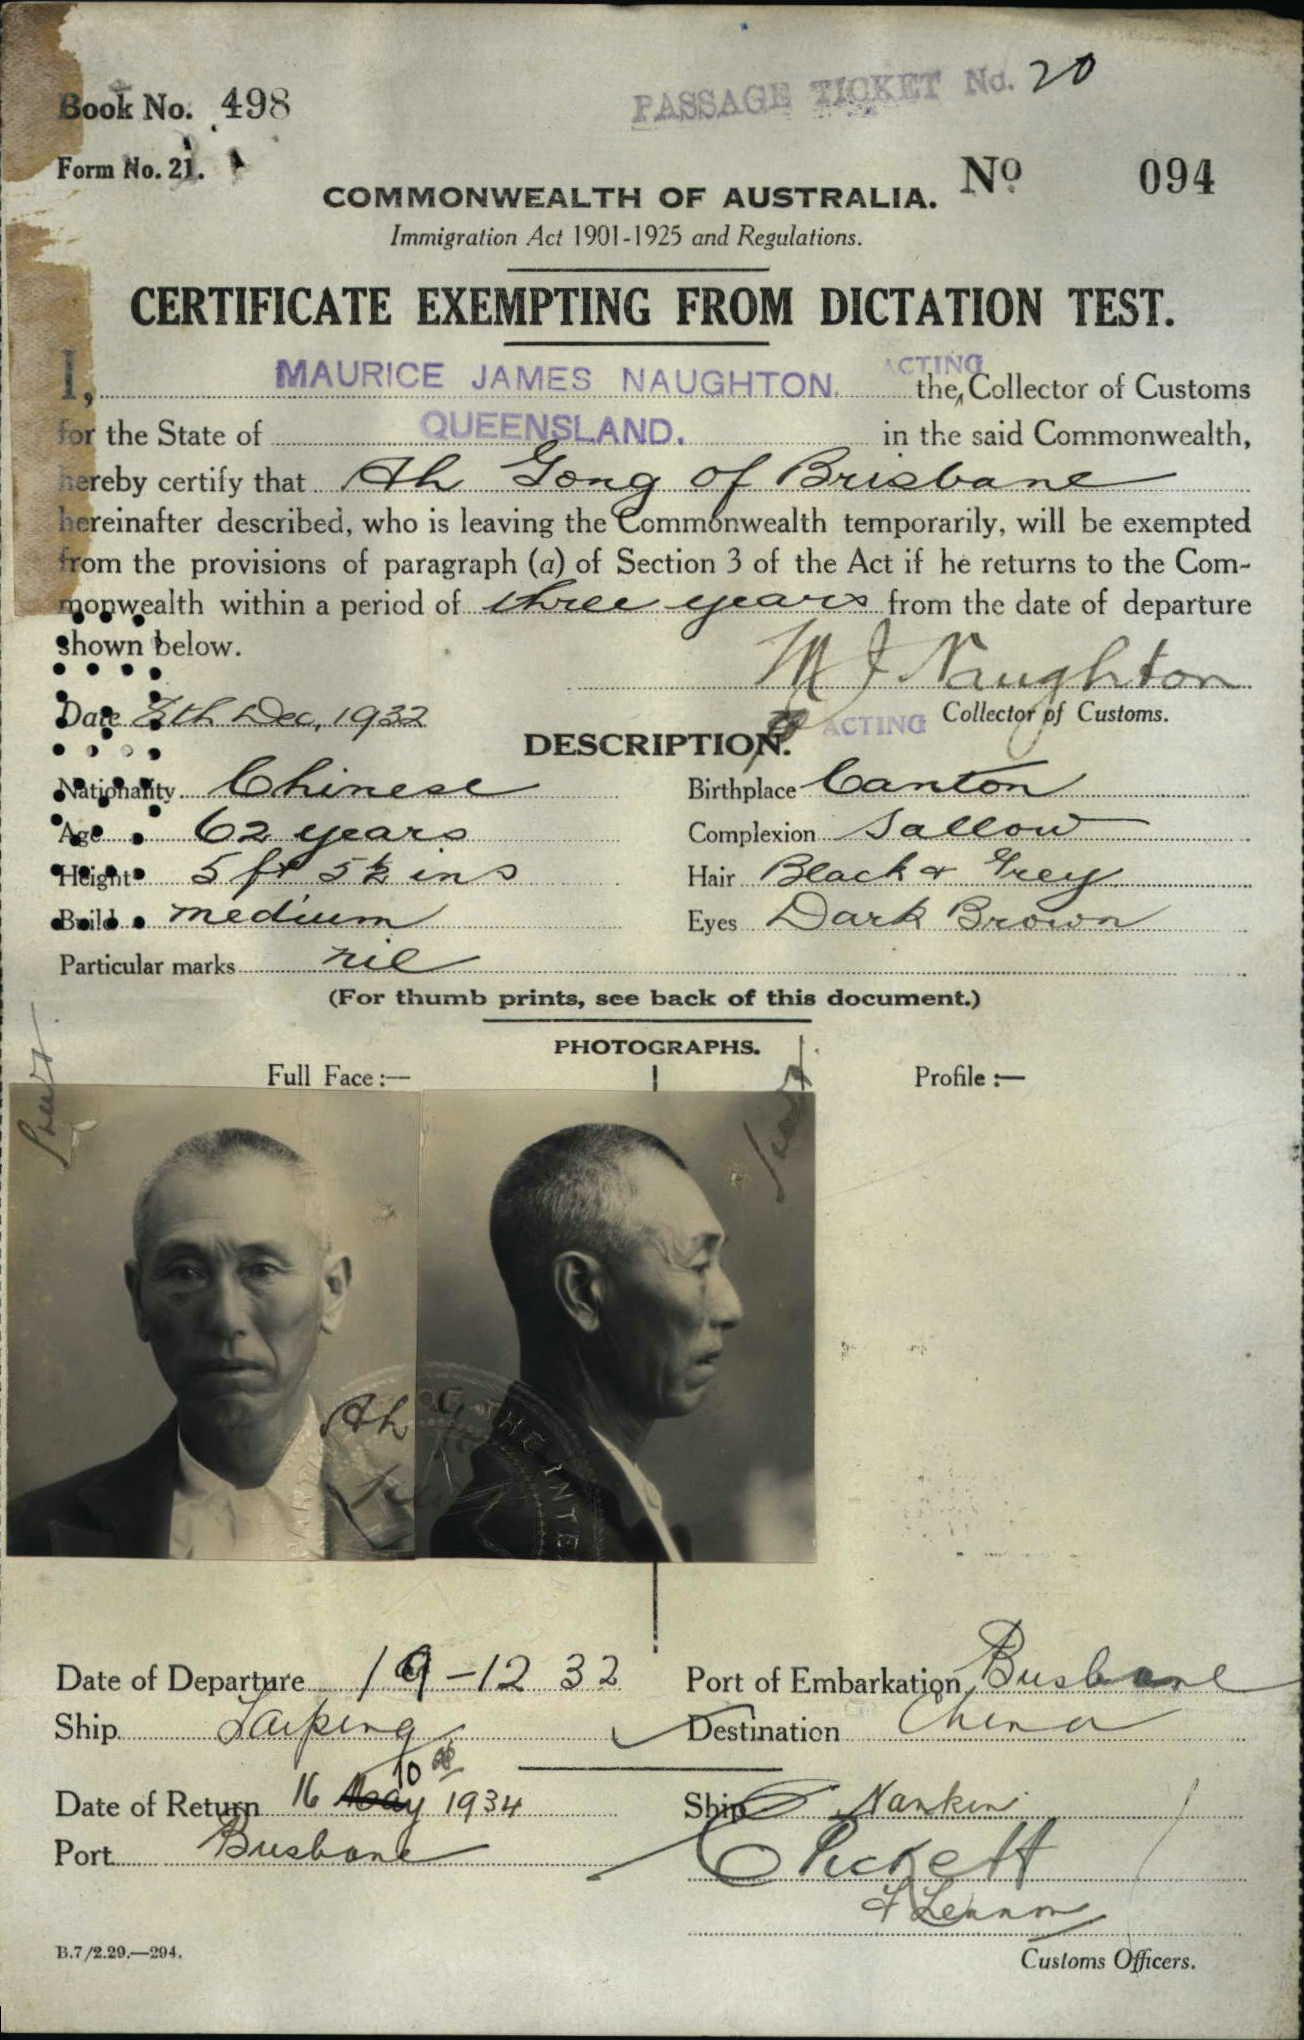 Book No. 498
PASSAGE TICKET No. 20
Form No. 21.
No. 094
COMMONWEALTH OF AUSTRALIA.
Immigration Act 1901-1925 and Regulations.
CERTIFICATE EXEMPTING FROM DICTATION TEST.
I, MAURICE JAMES NAUGHTON. the ACTING Collector of Customs
for the State of QUEENSLAND. in the said Commonwealth,
hereby certify that Ah Gong of Brisbane
hereinafter described, who is leaving the Commonwealth temporarily, will be exempted
from the provisions of paragraph (a) of Section 3 of the Act if he returns to the Com-
monwealth within a period of three years from the date of departure
shown below.
M J Naughton
Date Dec, 1932 ACTING Collector of Customs.
DESCRIPTION.
Nationality Chinese Birthplace Canton
Age 62 years Complexion Sallow
Height 5 ft 5½ ins Hair Black & Grey
Build medium Eyes Dark Brown
Particular marks nil
(For thumb prints, see back of this document.)
PHOTOGRAPHS.
Full Face :— Profile :—
Ah G
THE INTE
Date of Departure 19-12 32 Port of Embarkation Brisbane
Ship Taiping Destination China
Date of Return 16 May 10 1934 Ship Nankin
Port Brisbane
Pickett
F Lennon
B.7/2.29.—294.
Customs Officers.